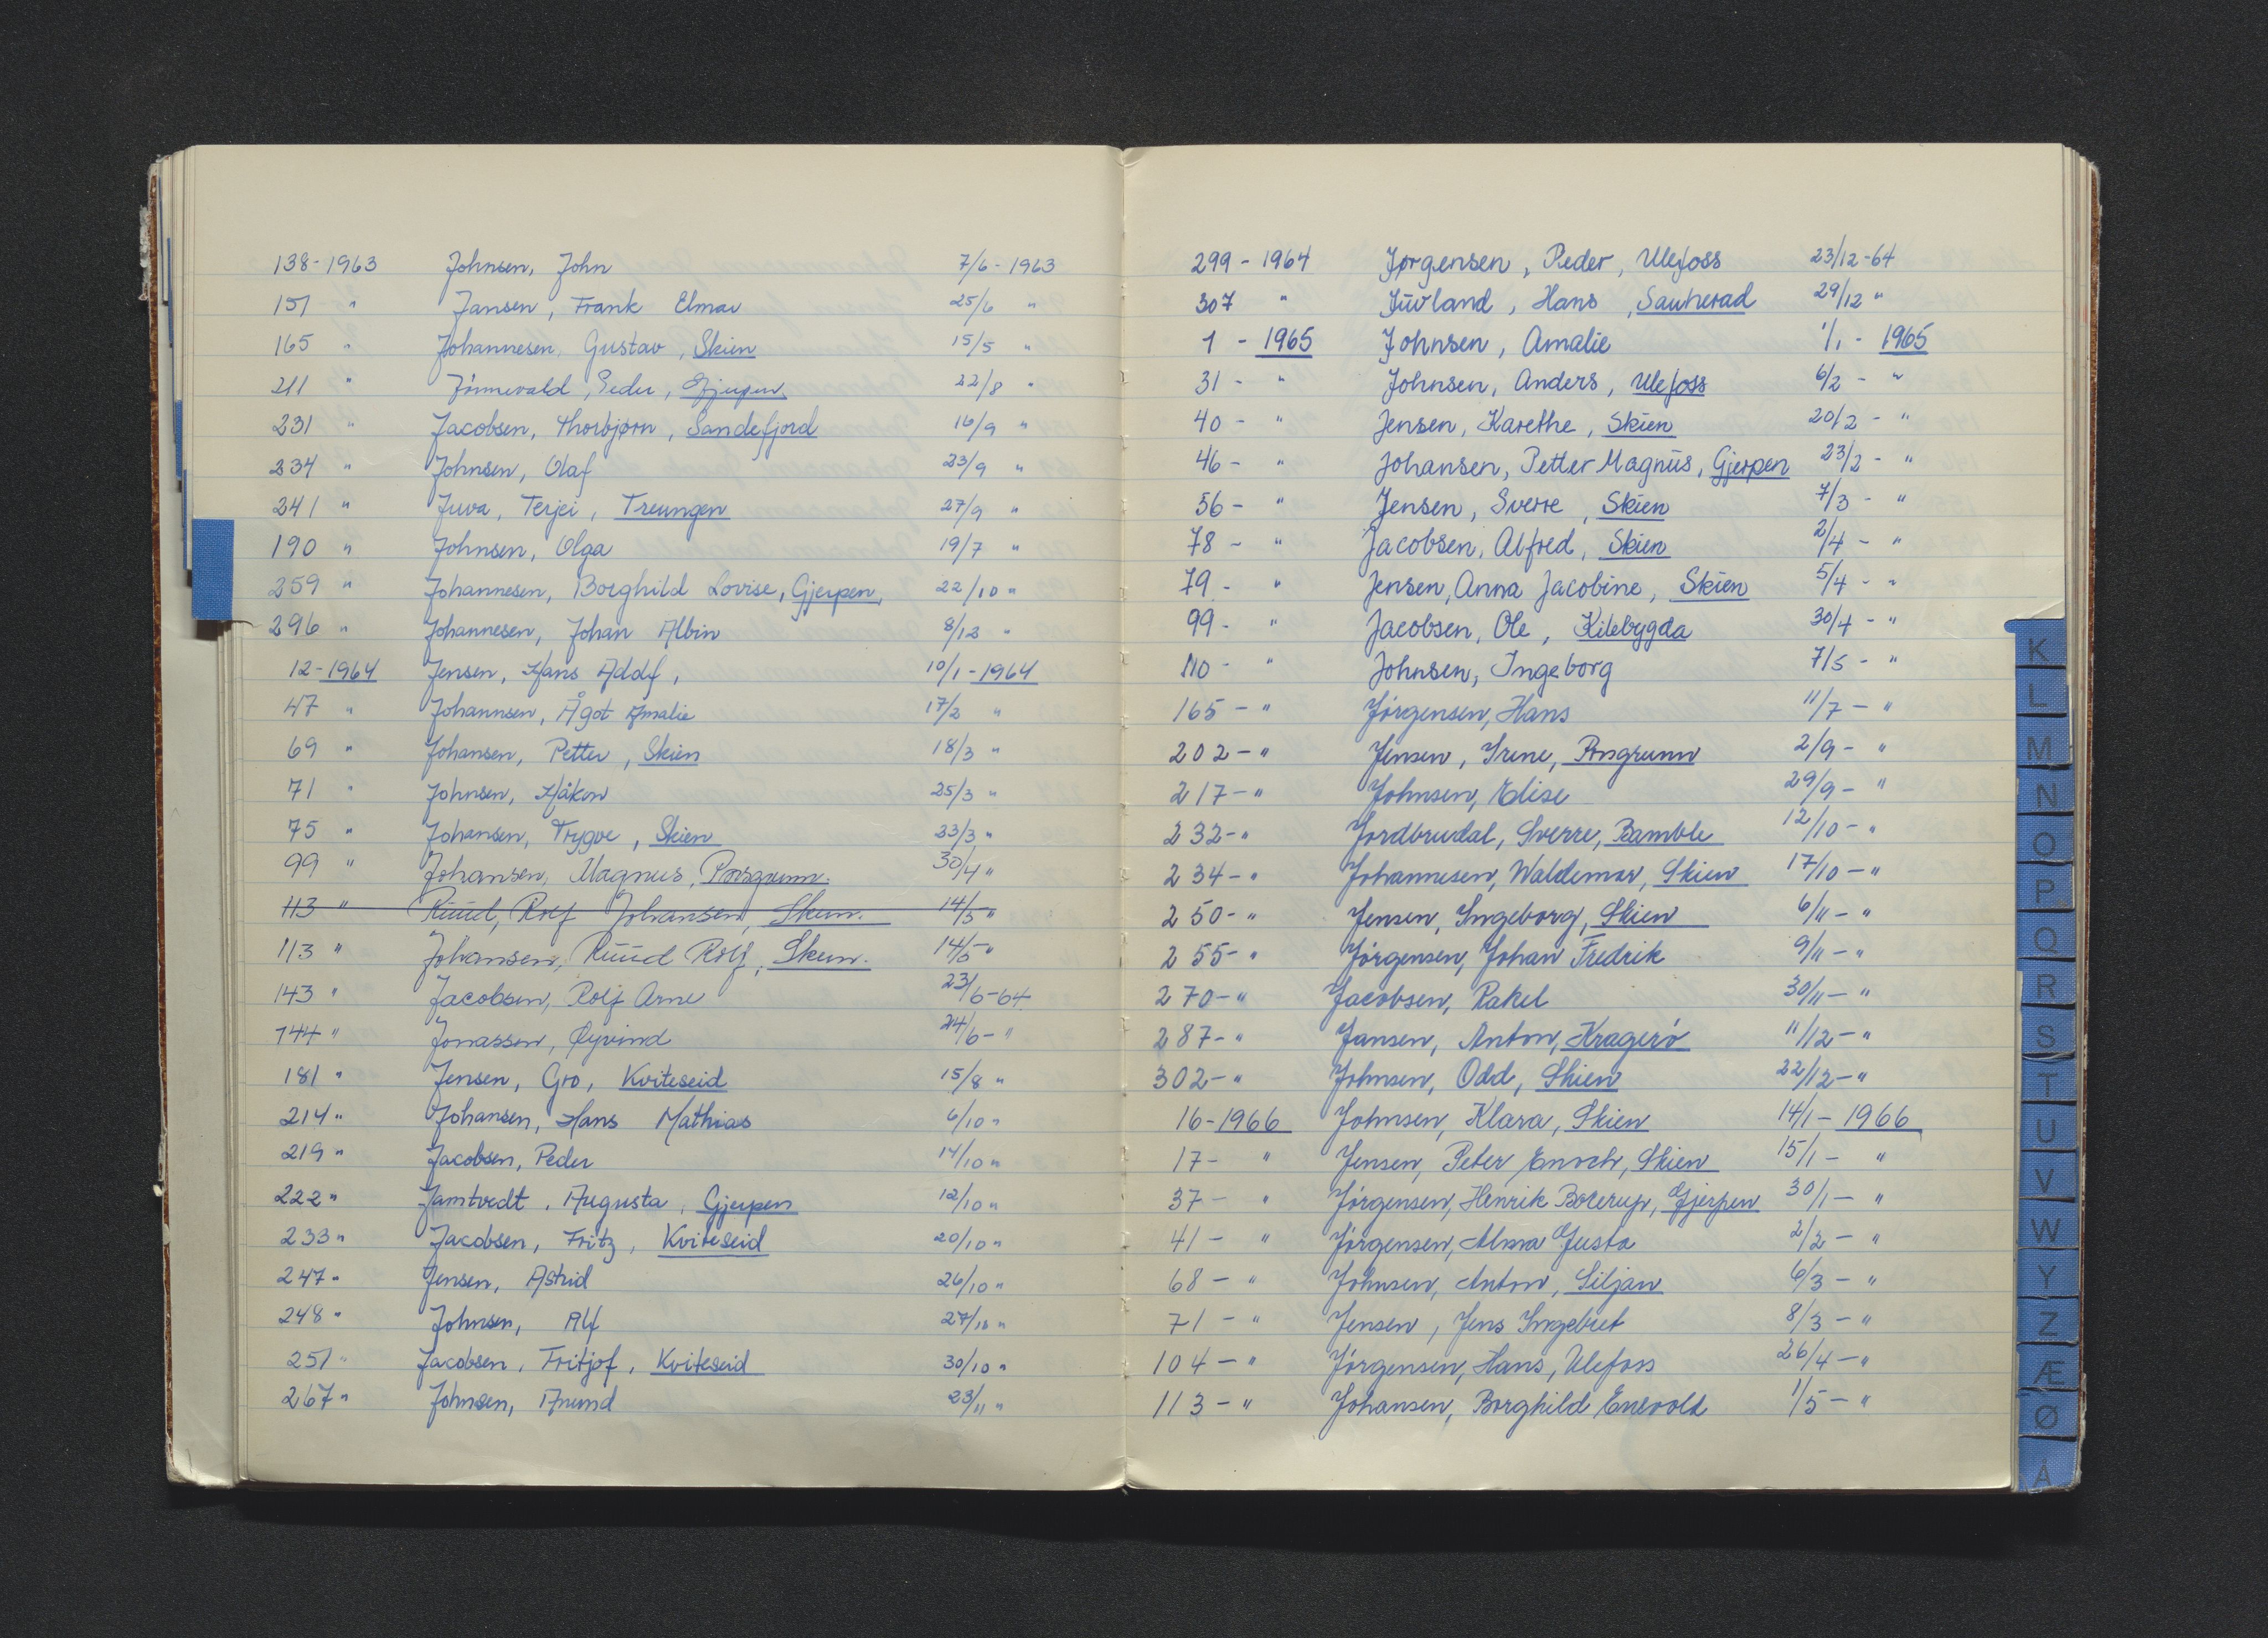 138-1963 Johnsen, John 7/6-1963
151 " Jansen, Frank Elmar 25/6 "
165 " Johannesen, Gustav, Skien 15/5 "
211 " Jönnevald, Peder, Gjerpen 22/8 "
231 " Jacobsen, Thorbjørn, Sandefjord 16/9 "
234 " Johnsen, Olaf 23/9 "
241 " Juva, Terjei, Treungen 27/9 "
190 " Johnsen, Olga 19/7 "
259 " Johannesen, Borghild Lovise, Gjerpen, 22/10 "
296 " Johannesen, Johan Albin 8/12 "
12-1964 Jensen, Hans Adolf, 10/1-1964
47 " Johannsen, Ågot Amalie 17/2 "
69 " Johansen, Petter, Skien 18/3 "
71 " Johnsen, Håkon 25/3 "
75 " Johansen, Trygve, Skien 23/3 "
99 " Johansen, Magnus, Porsgrunn. 30/4 "
113 " Ruud, Rolf Johansen, Skien. 14/5 "
113 " Johansen, Ruud Rolf, Skien. 14/5 "
143 " Jacobsen, Rolf Arne 23/6-64
144 " Jonassen, Øyvind 24/6- "
181 " Jensen, Gro, Kviteseid 15/8 "
214 " Johansen, Hans Mathias 6/10 "
219 " Jacobsen, Peder 14/10 "
222 " Jamtvedt, Augusta, Gjerpen 12/10 "
233 " Jacobsen, Fritz, Kviteseid 20/10 "
247 " Jensen, Astrid 26/10 "
248 " Johnsen, Alf 27/10 "
251 " Jacobsen, Fritjof, Kviteseid 30/10 "
267 " Johnsen, Anund 23/11 "
299-1964 Jørgensen, Peder, Ulefoss 23/12-64
307 " Juvland, Hans, Sauherad 29/12 "
1-1965 Johnsen, Amalie 1/1-1965
31- " Johnsen, Anders, Ulefoss 6/2- "
40- " Jensen, Karethe, Skien 20/2- "
46- " Johansen, Petter Magnus, Gjerpen 23/2- "
56- " Jensen, Sverre, Skien 7/3- "
78- " Jacobsen, Alfred, Skien 2/4- "
79- " Jensen, Anna Jacobine, Skien 5/4- "
99- " Jacobsen, Ole, Kilebygda 30/4- "
110- " Johnsen, Ingeborg 7/5- "
165- " Jörgensen, Hans 11/7- "
202- " Jensen, Irene, Porsgrunn 2/9- "
217- " Johnsen, Elise 29/9- "
232- " Jordbrudal, Sverre, Bamble 12/10- "
234- " Johannesen, Waldemar, Skien 17/10- "
250- " Jensen, Ingeborg, Skien 6/11- "
255- " Jörgensen, Johan Fredrik 9/11- "
270- " Jacobsen, Rakel 30/11- "
287- " Jansen, Anton, Kragerö 11/12- "
302- " Johnsen, Odd, Skien 22/12- "
16-1966 Johnsen, Klara, Skien 14/1-1966
17- " Jensen, Peter Enoch, Skien 15/1- "
37- " Jörgensen, Henrik Borerup, Gjerpen 30/1- "
41- " Jörgensen, Alma Gusta 2/2- "
68- " Johnsen, Anton, Siljan 6/3- "
71- " Jensen, Jens Ingebret 8/3- "
104- " Jörgensen, Hans, Ulefoss 26/4- "
113- " Johansen, Borghild Enevold 1/5- "
K
L
M
N
O
P
Q
R
S
T
U
V
W
Y
Z
Æ
Ø
Å